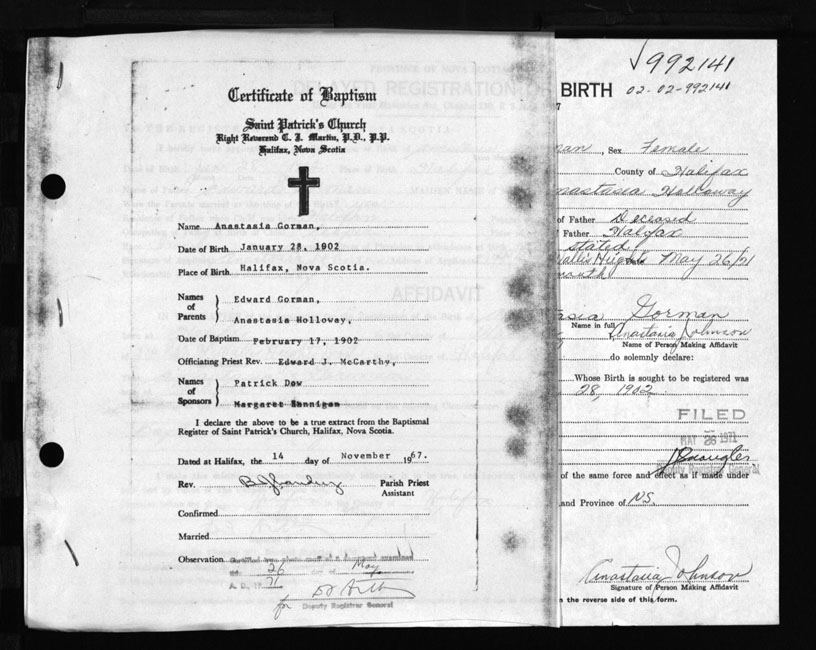 Certificate of Baptism
Saint Patrick's Church
Right Reverend C. J. Martin, P.D., P.P.
Halifax, Nova Scotia
Name Anastasia Gorman,
Date of Birth January 28, 1902
Place of Birth Halifax, Nova Scotia.
Names of Parents } Edward Gorman,
Anastasia Holloway,
Date of Baptism February 17, 1902
Officiating Priest Rev. Edward J. McCarthy,
Names of Sponsors } Patrick Dow
Margaret Hannigan
I declare the above to be a true extract from the Baptismal
Register of Saint Patrick's Church, Halifax, Nova Scotia.
Dated at Halifax, the 14 day of November 1967.
Rev. Parish Priest
Assistant
Confirmed
Married
Observation
26 day of May
A. D. 19 71
for Deputy Registrar General
DELAYED REGISTRATION
AFFIDAVIT
√992141
BIRTH 02-02-992141
man, Sex Female
County of Halifax
nastasia Holloway
of Father Deceased
Father Halifax
stated
Date May 26/71
month
asia Gorman
Name in full
Anastasia Johnson
Name of Person Making Affidavit
do solemnly declare:
Whose Birth is sought to be registered was
28, 1902
FILED
MAY 26 1971
Deputy Registrar General
of the same force and effect as if made under
and Province of N.S.
Anastasia Johnson
Signature of Person Making Affidavit
n the reverse side of this form.